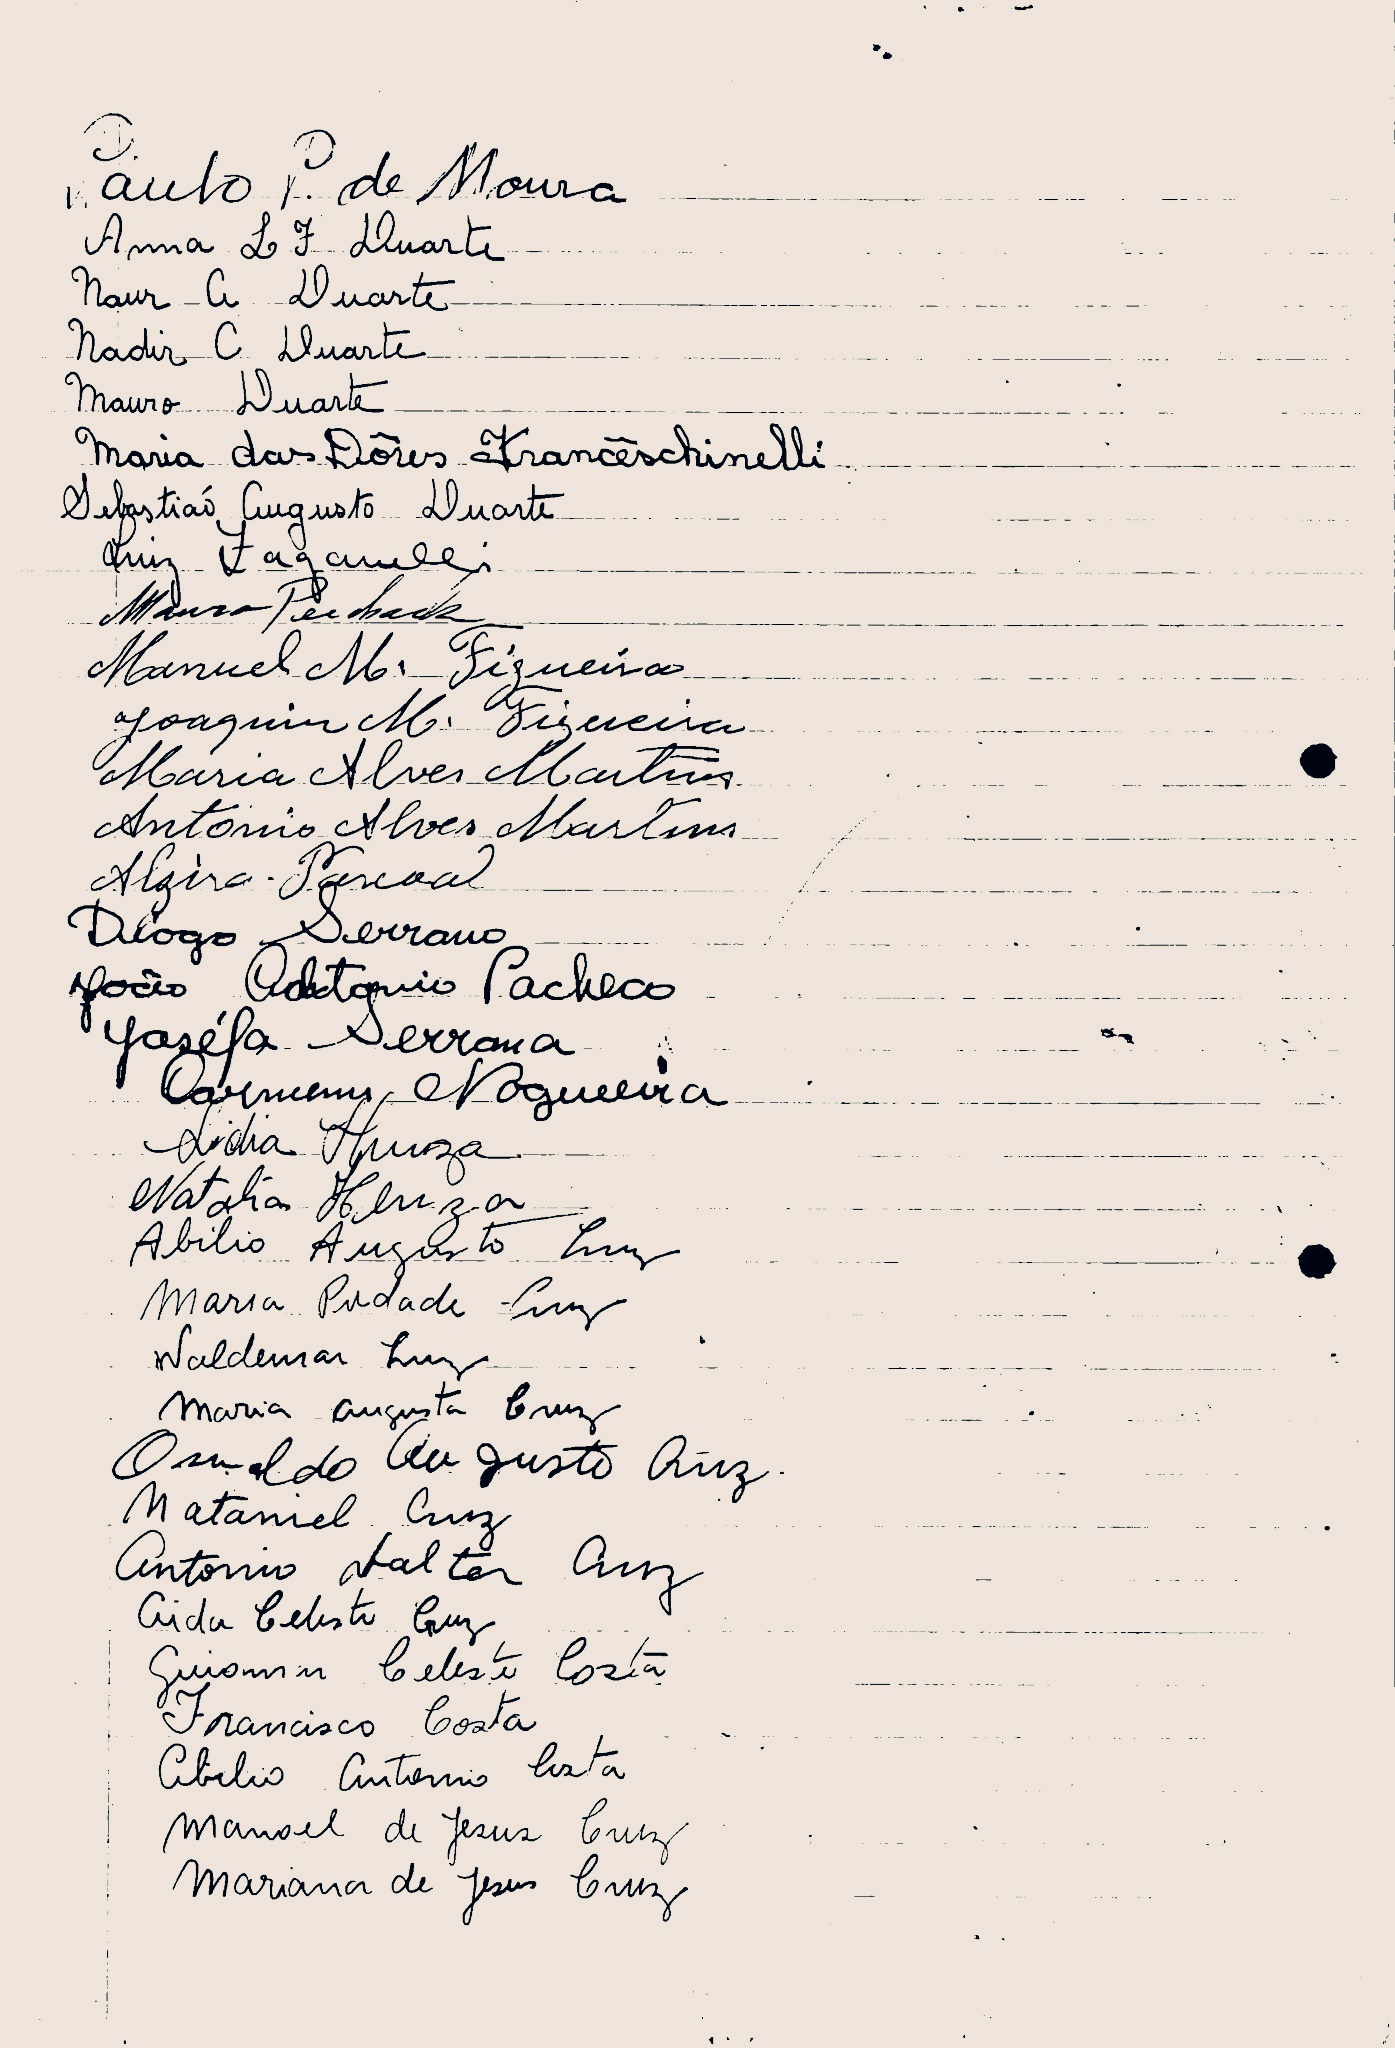 Paulo P. de Moura
Anna L F Duarte
Naur A Duarte
Nadir C Duarte
Mauro Duarte
Maria das Dôres Franceschinelli
Sebastiaó Augusto Duarte
Luiz Zaganelli
Mauro
Manuel M. Figueira
Joaquim M. Figueira
Maria Alves Martins
Antonio Alves Martins
Alzira Pascoal
Diogo Serrano
João Antonio Pacheco
Joséfa Serrana
Carmem Nogueira
Lidia
Natalia Henza
Abilio Augusto Cruz
Maria Piedade Cruz
Waldemar Cruz
Maria Augusta Cruz
Oswaldo Augusto Cruz.
Nataniel Cruz
Antonio Walter Cruz
Aida Celeste Cruz
Guiomar Celeste Costa
Francisco Costa
Abilio Antonio Costa
Manoel de Jesus Cruz
Mariana de Jesus Cruz